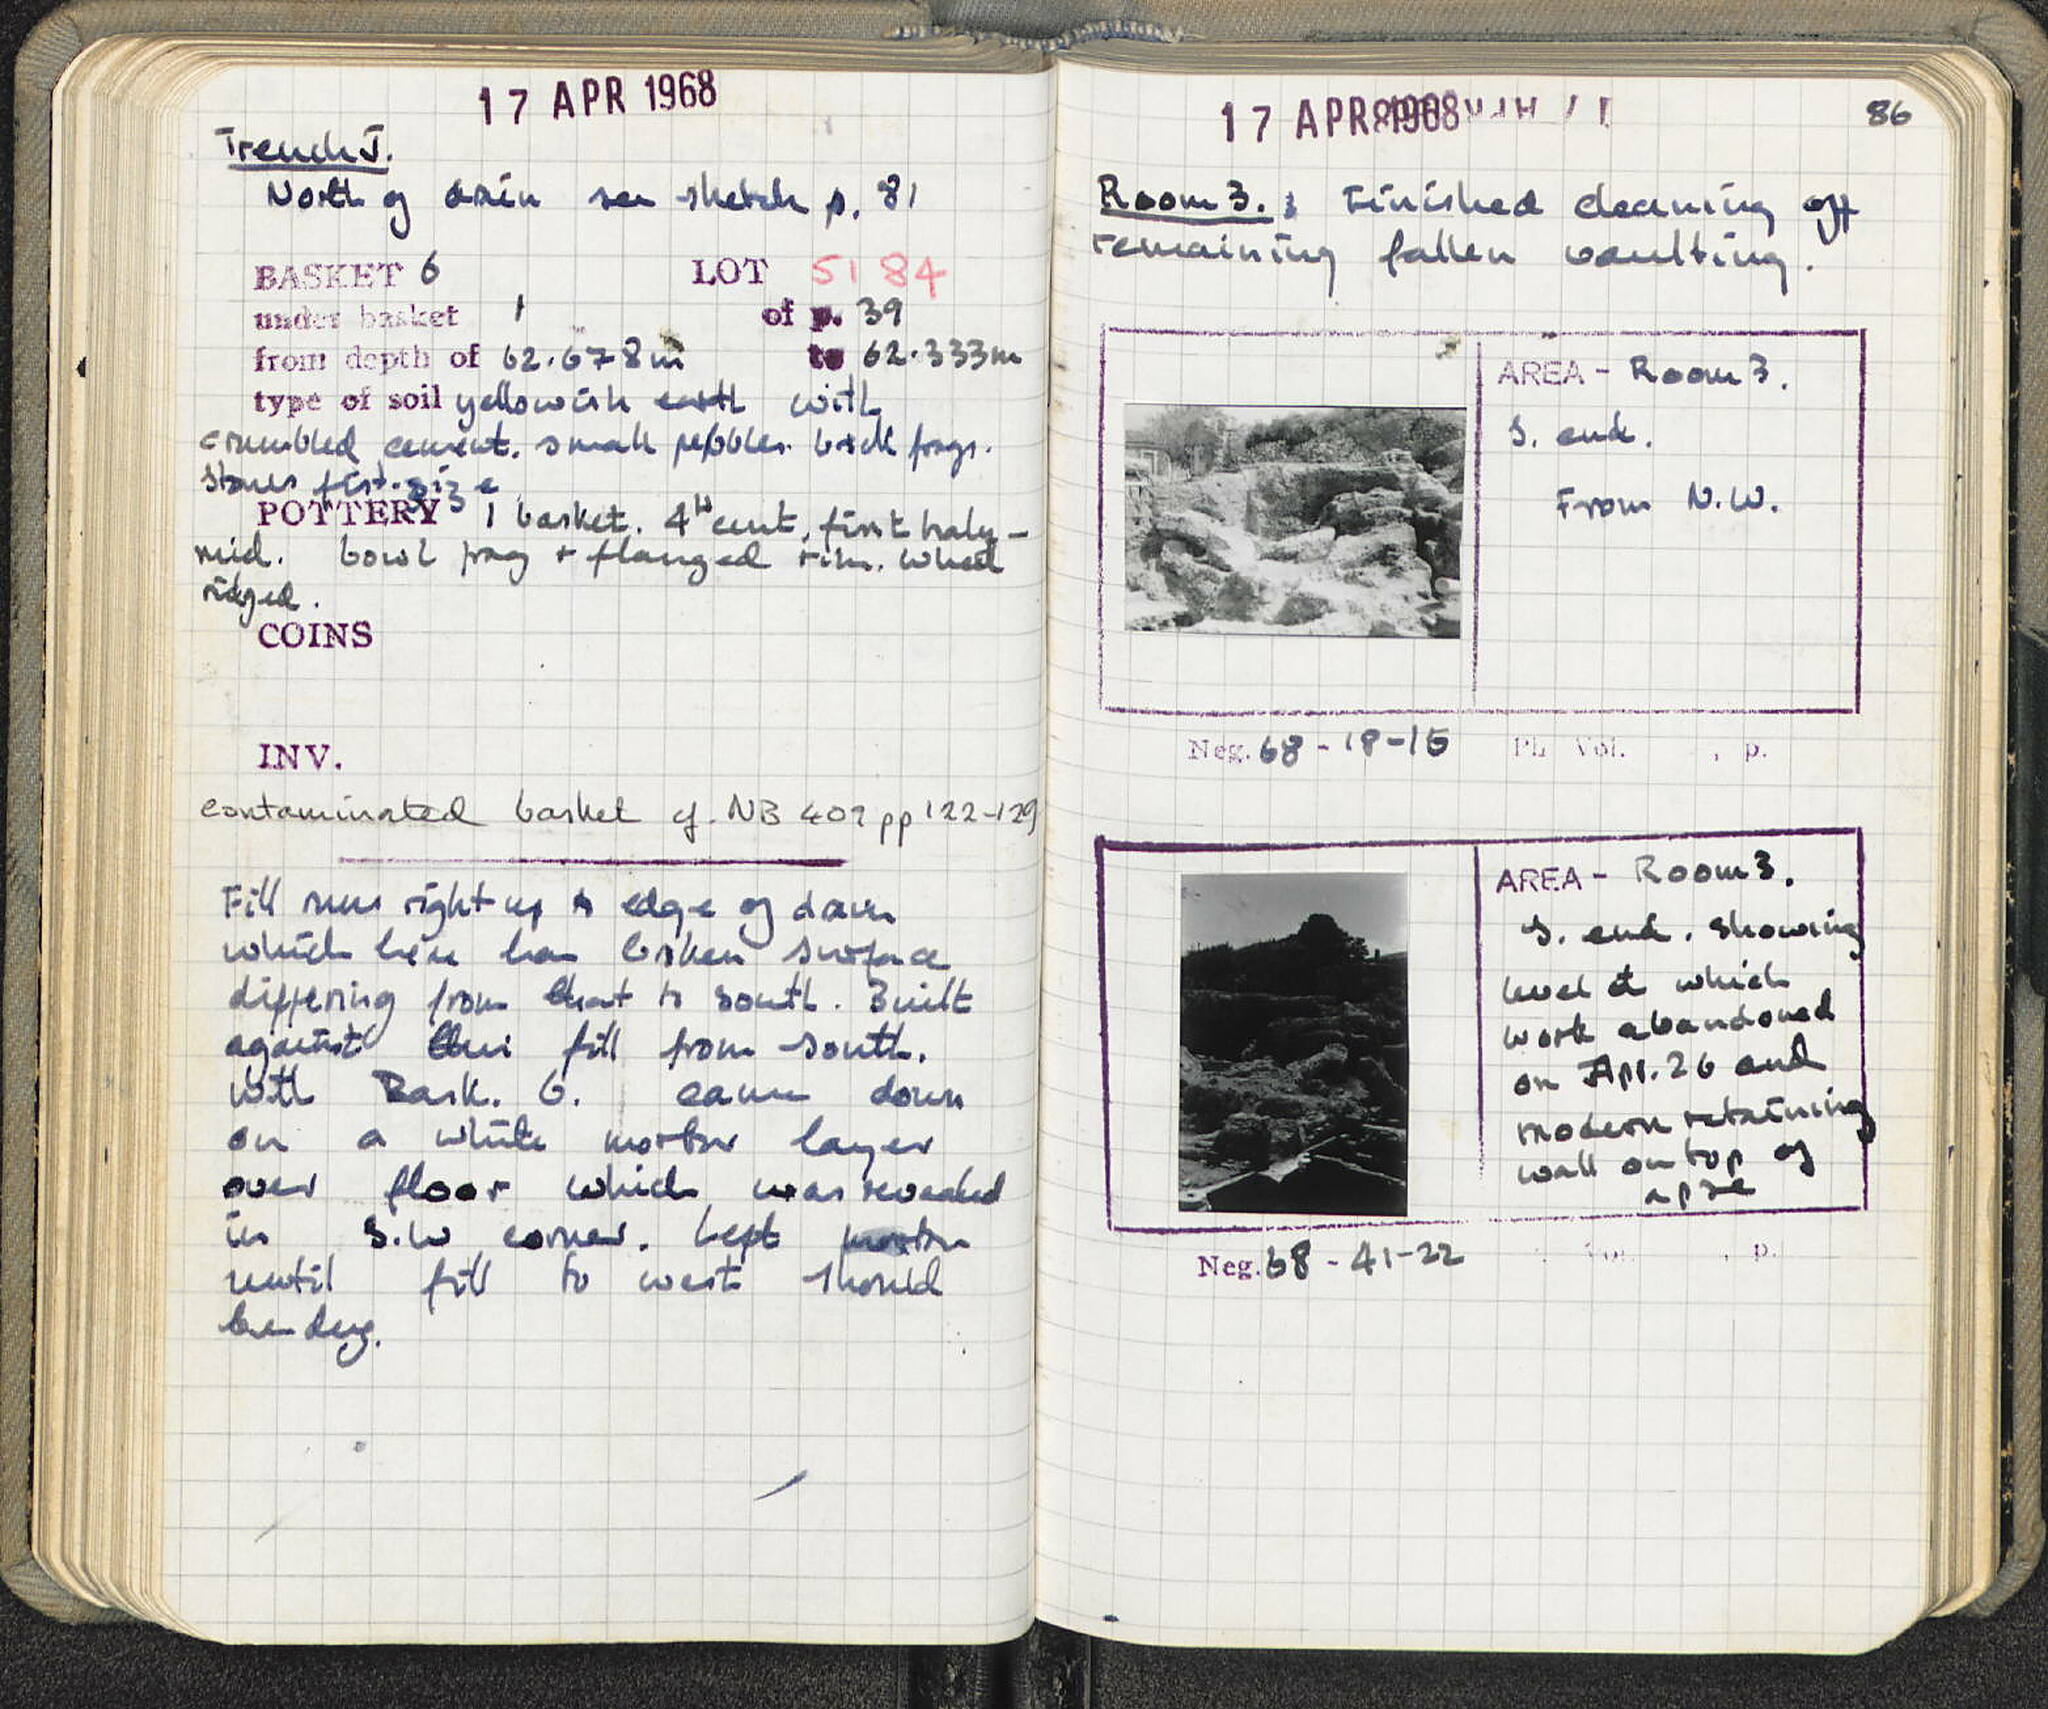 17 APR 1968
Trench J.
North of drain see sketch p. 81
BASKET 6 LOT 5184
under basket 1 of p. 39
from depth of 62.678m to 62.333m
type of soil yellowish earth with
crumbled cement. small pebbles. brick frags.
stones fist-size
POTTERY 1 basket. 4th cent, first half-
mid. bowl frag + flanged rim. wheel
ridged.
COINS
INV.
contaminated basket cf. NB 402 pp 122-129
Fill runs right up to edge of drain
which here has broken surface
differing from that to south. Built
against this fill from south.
With Bask. 6. came down
on a white mortar layer
over floor which was revealed
in S.W corner. Left mortar
until fill to west should
be dug.
17 APR 1968
86
Room 3.: Finished cleaning off
remaining fallen vaulting.
AREA - Room 3.
S. end.
From N.W.
Neg. 68-18-15 Ph Vol. , p.
AREA - Room 3.
S. end. showing
level at which
work abandoned
on Apr. 26 and
modern retaining
wall on top of
apse
Neg. 68-41-22 Vol. , p.